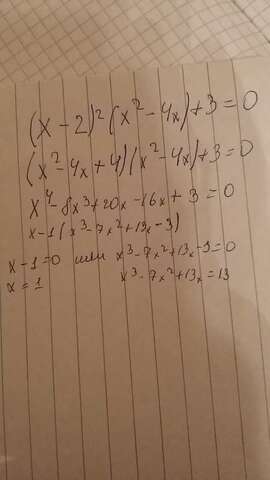 (x-2)²(x²-4x)+3=0
(x²-4x+4)(x²-4x)+3=0
x⁴-8x³+20x-16x+3=0
x-1(x³-7x²+13x-3)
x-1=0 или x³-7x²+13x-3=0
x=1 x³-7x²+13x=13